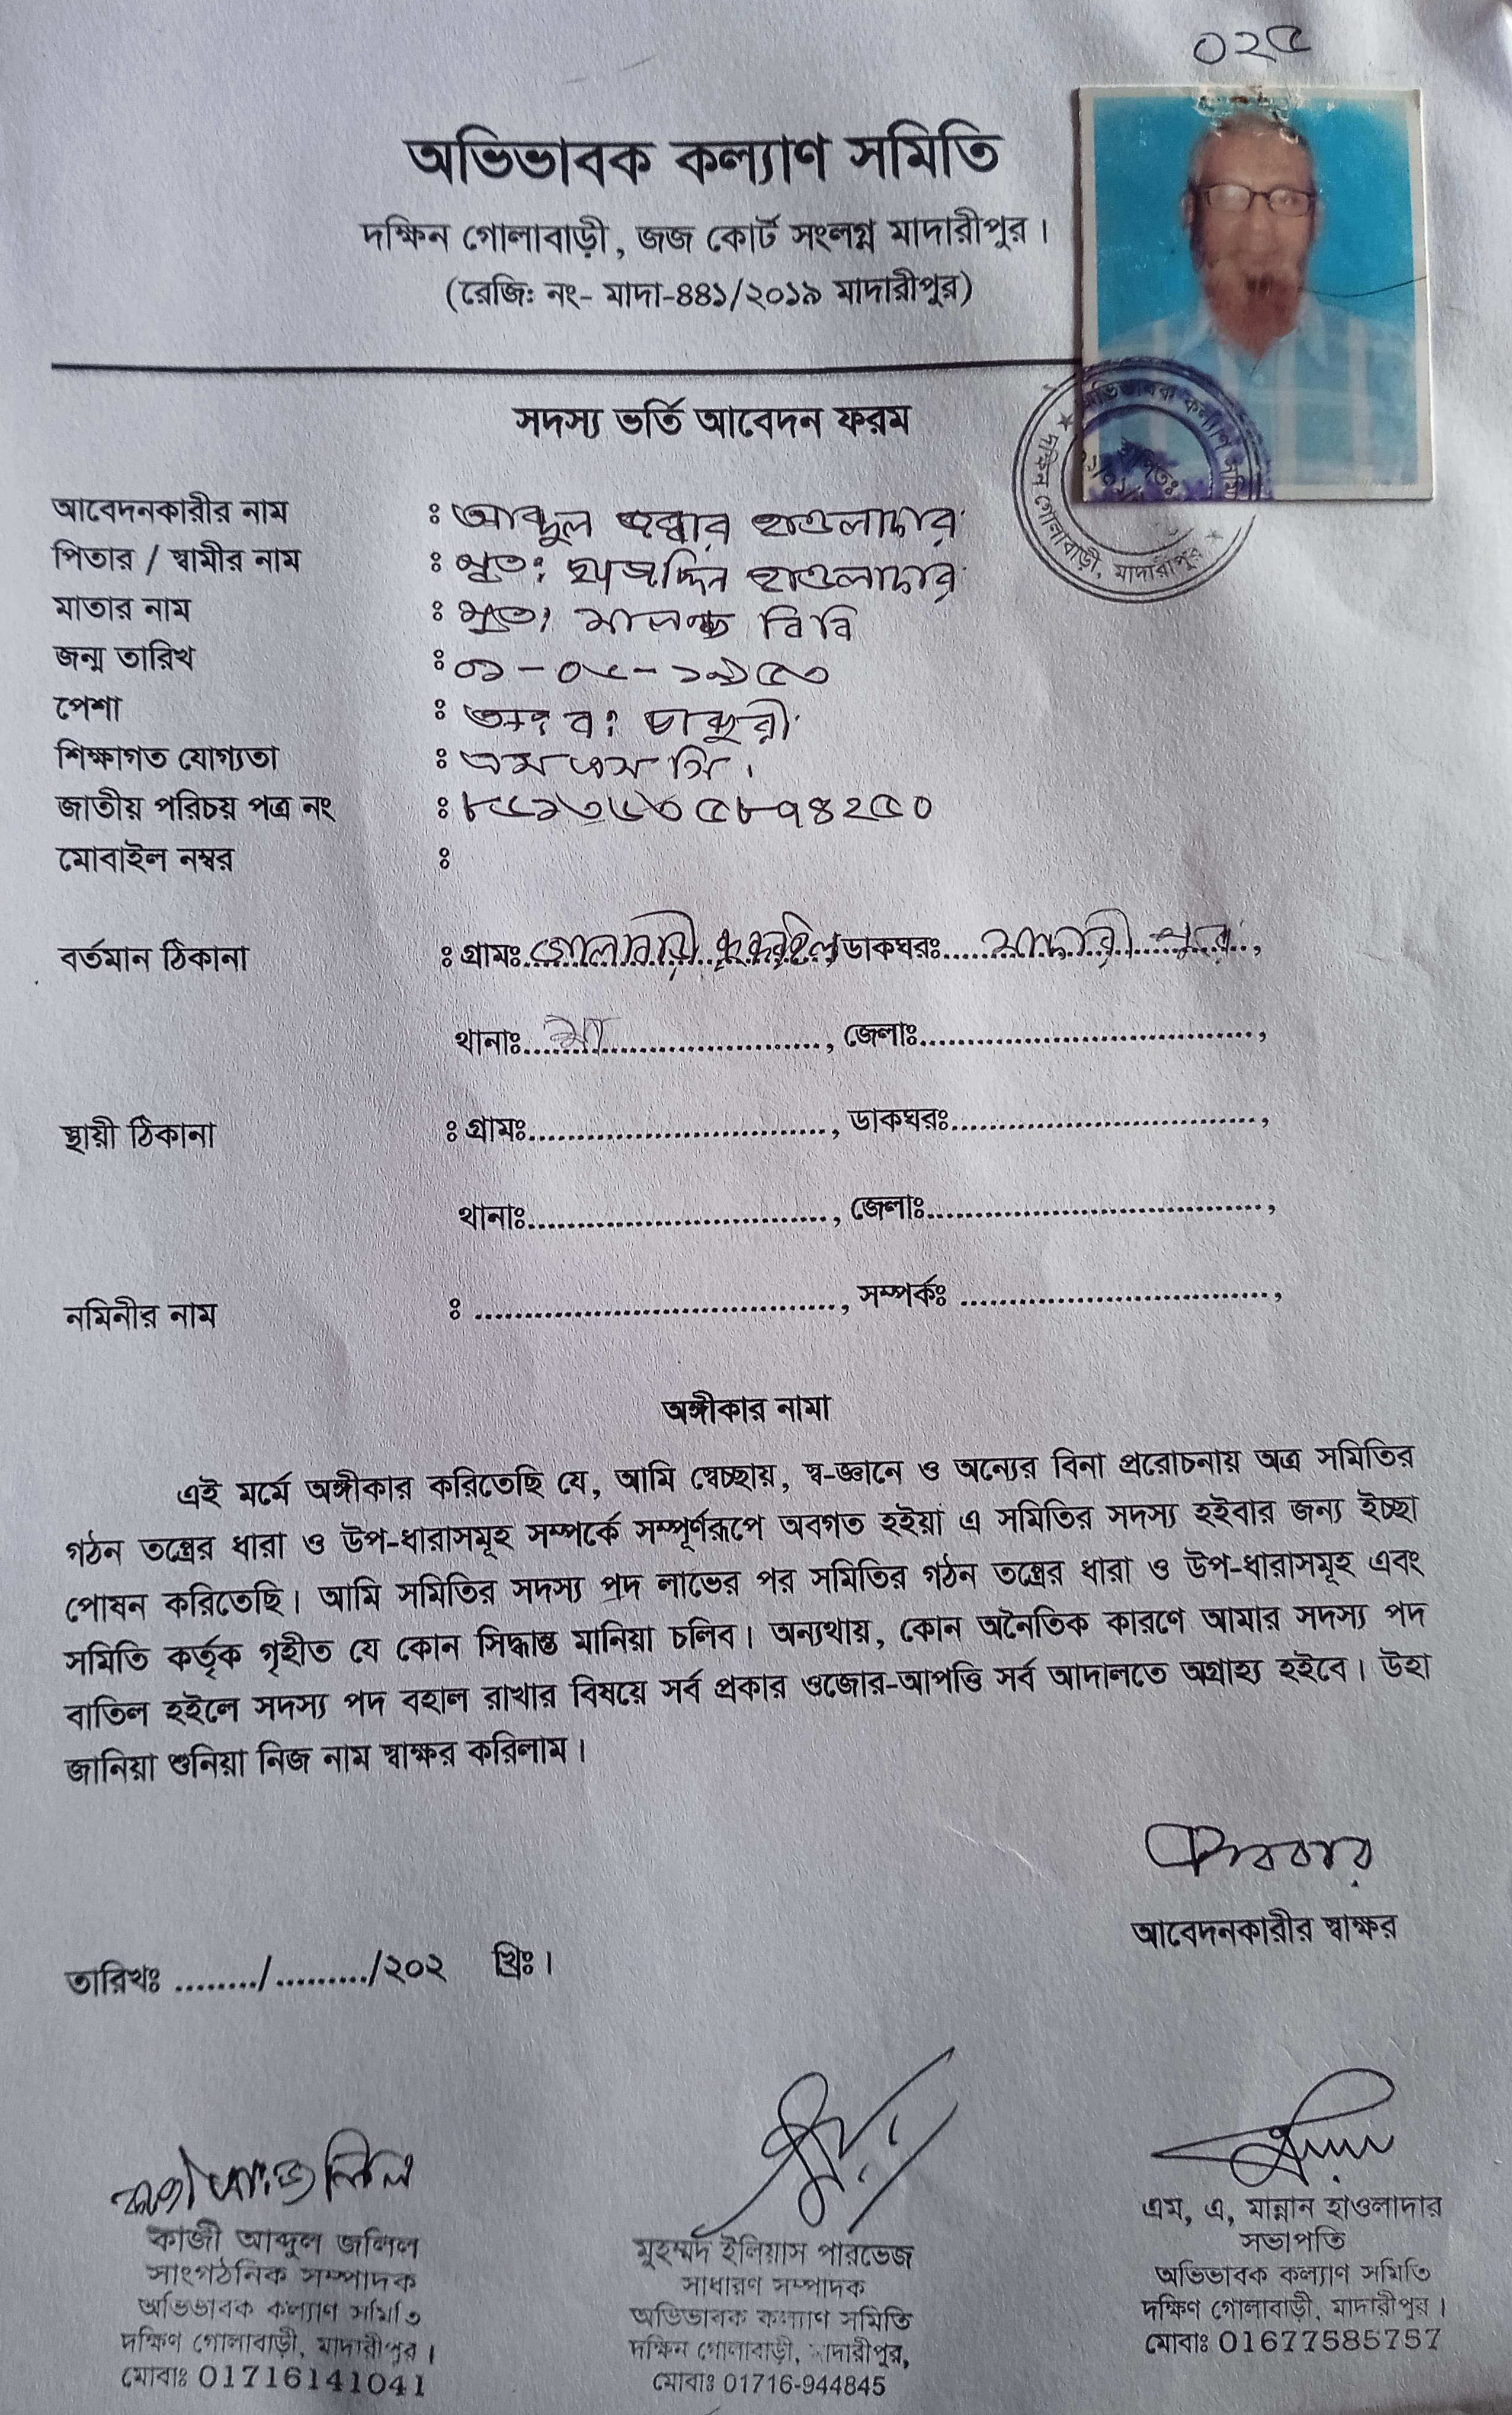 ০২৫
অভিভাবক কল্যাণ সমিতি
দক্ষিন গোলাবাড়ী, জজ কোর্ট সংলগ্ন মাদারীপুর।
(রেজি: নং- মাদা-৪৪১/২০১৯ মাদারীপুর)
অভিভাবক কল্যাণ সমি
দক্ষিন গোলাবাড়ী, মাদারীপুর
সদস্য ভর্তি আবেদন ফরম
আবেদনকারীর নাম : আব্দুল জব্বার হাওলাদার
পিতার / স্বামীর নাম : মৃত: হাওলাদার
মাতার নাম : মৃত: বিবি
জন্ম তারিখ : ০১-০৬-১৯৫৩
পেশা : অব: চাকুরী
শিক্ষাগত যোগ্যতা : এম এস সি।
জাতীয় পরিচয় পত্র নং :
মোবাইল নম্বর :
বর্তমান ঠিকানা : গ্রামঃ গোলাবাড়ী ডাকঘরঃ মাদারীপুর,
থানাঃ মা, জেলাঃ,
স্থায়ী ঠিকানা : গ্রামঃ, ডাকঘরঃ,
থানাঃ, জেলাঃ,
নমিনীর নাম : , সম্পর্কঃ ,
অঙ্গীকার নামা
এই মর্মে অঙ্গীকার করিতেছি যে, আমি স্বেচ্ছায়, স্ব-জ্ঞানে ও অন্যের বিনা প্ররোচনায় অত্র সমিতির
গঠন তন্ত্রের ধারা ও উপ-ধারাসমূহ সম্পর্কে সম্পূর্ণরূপে অবগত হইয়া এ সমিতির সদস্য হইবার জন্য ইচ্ছা
পোষন করিতেছি। আমি সমিতির সদস্য পদ লাভের পর সমিতির গঠন তন্ত্রের ধারা ও উপ-ধারাসমূহ এবং
সমিতি কর্তৃক গৃহীত যে কোন সিদ্ধান্ত মানিয়া চলিব। অন্যথায়, কোন অনৈতিক কারণে আমার সদস্য পদ
বাতিল হইলে সদস্য পদ বহাল রাখার বিষয়ে সর্ব প্রকার ওজোর-আপত্তি সর্ব আদালতে অগ্রাহ্য হইবে। উহা
জানিয়া শুনিয়া নিজ নাম স্বাক্ষর করিলাম।
আবেদনকারীর স্বাক্ষর
তারিখঃ ......../........./২০২ খ্রিঃ।
কাজী আব্দুল জলিল
সাংগঠনিক সম্পাদক
অভিভাবক কল্যাণ সমিতি
দক্ষিণ গোলাবাড়ী, মাদারীপুর।
মোবাঃ 01716141041
মুহম্মদ ইলিয়াস পারভেজ
সাধারণ সম্পাদক
অভিভাবক কল্যাণ সমিতি
দক্ষিন গোলাবাড়ী, মাদারীপুর,
মোবাঃ 01716-944845
এম, এ, মান্নান হাওলাদার
সভাপতি
অভিভাবক কল্যাণ সমিতি
দক্ষিণ গোলাবাড়ী, মাদারীপুর।
মোবাঃ 01677585757